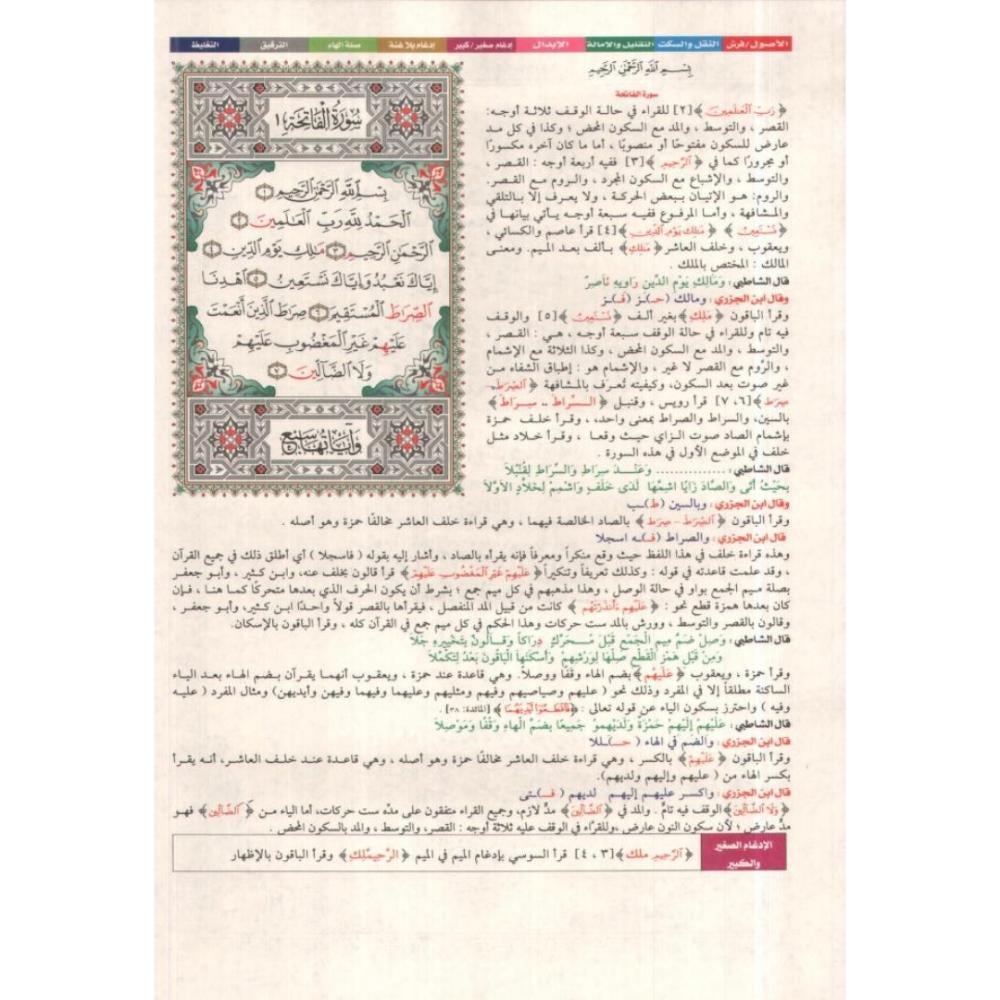 الأصول/فرش النقل والسكت التقليل والإمالة الإبدال إدغام صغير/كبير إدغام بلا غنة صلة الهاء الترقيق التغليظ
بِسْمِ اللَّهِ الرَّحْمَٰنِ الرَّحِيمِ
سورة الفاتحة
﴿ رَبِّ الْعَٰلَمِينَ ﴾[٢] للقراء في حالة الوقف ثلاثة أوجه:
القصر ، والتوسط ، والمد مع السكون المحض ؛ وكذا في كل مد
عارض للسكون مفتوحًا أو منصوبًا ، أما ما كان آخره مكسورًا
أو مجرورًا كما في ﴿ الرَّحِيمِ ﴾[٣] ففيه أربعة أوجه : القصر ،
والتوسط ، والإشباع مع السكون المجرد ، والروم مع القصر.
والروم: هو الإتيان ببعض الحركة ، ولا يعرف إلا بالتلقي
والمشافهة ، وأما المرفوع ففيه سبعة أوجه يأتي بيانها في
﴿ نَسْتَعِينُ ﴾ ﴿ مَٰلِكِ يَوْمِ الدِّينِ ﴾[٤] قرأ عاصم والكسائي ،
ويعقوب ، وخلف العاشر ﴿مَٰلِكِ﴾ بألف بعد الميم. ومعنى
المالك : المختص بالملك .
قال الشاطبي : وَمَالِكِ يَوْمِ الدِّينِ رَاوِيهِ نَاصِرٌ
وقال ابن الجزري : ومالك (حـ)ـز (فـ)ـز
وقرأ الباقون ﴿ مَلِكِ ﴾بغير ألف ﴿ نَسْتَعِينُ ﴾[٥] والوقف
فيه تام وللقراء في حالة الوقف سبعة أوجه ، هي : القصر ،
والتوسط ، والمد مع السكون المحض ، وكذا الثلاثة مع الإشمام
، والرَّوم مع القصر لا غير ، والإشمام هو : إطباق الشفاه من
غير صوت بعد السكون، وكيفيته تُعرَف بالمشافهة ﴿ الصِّرَٰطَ،
صِرَٰطَ ﴾[٦، ٧] قرأ رويس ، وقنبل ﴿ السِّراطَ .. سِراطَ ﴾
بالسين، والسراط والصراط بمعنى واحد، ، وقرأ خلف حمزة
بإشمام الصاد صوت الزاي حيث وقعا ، وقرأ خلاد مثل
خلف في الموضع الأول في هذه السورة .
قال الشاطبي : ................ وَعَنْـدَ سِرَاطِ وَالسِّرَاطِ لِقُنْبُلَا
بِحَيْثُ أَتَى وَالصَّادَ زَايًا اشِمَّهَا لَدَى خَلَفٍ وَاشْمِمْ لِخَلَّادٍ الأَوَّلَا
وقال ابن الجزري : وبالسين (ط)ـب
وقرأ الباقون ﴿ الصِّرَٰطَ - صِرَٰطَ ﴾ بالصاد الخالصة فيهما ، وهي قراءة خلف العاشر مخالفًا حمزة وهو أصله .
قال ابن الجزري : والصراط (فـ)ـه اسجلا
وهذه قراءة خلف في هذا اللفظ حيث وقع منكراً ومعرفاً فإنه يقرأه بالصاد ، وأشار إليه بقوله ( فاسجلا ) أي أطلق ذلك في جميع القرآن
، وقد علمت قاعدته في قوله : وكذلك تعريفاً وتنكيراً﴿ عَلَيْهِمْ غَيْرِ الْمَغْضُوبِ عَلَيْهِمْ ﴾ قرأ قالون بخلف عنه، وابن كثير ، وأبو جعفر
بصلة ميم الجمع بواو في حالة الوصل ، وهذا مذهبهم في كل ميم جمع ؛ بشرط أن يكون الحرف الذي بعدها متحركاً كما هنا ، فإن
كان بعدها همزة قطع نحو : ﴿ عَلَيْهِم ءَأَنذَرْتَهُمْ ﴾ كانت من قبيل المد المنفصل ، فيقرأها بالقصر قولاً واحدًا ابن كثير، وأبو جعفر ،
وقالون بالقصر والتوسط ، وورش بالمد ست حركات وهذا الحكم في كل ميم جمع في القرآن كله ، وقرأ الباقون بالإسكان.
قال الشاطبي : وَصِلْ ضَمَّ مِيمِ الْجَمْعِ قَبْلَ مُحَرَّكٍ دِرَاكًا وَقَالُونٌ بِتَخْيِيرِهِ جَلَا
وَمِنْ قَبْلِ هَمْزِ الْقَطْعِ صِلْهَا لِوَرْشِهِمْ وَأَسْكَنَهَا الْبَاقُونَ بَعْدُ لِتَكْمُلَا
وقرأ حمزة ، ويعقوب ﴿ عَلَيْهُم ﴾بضم الهاء وقفًا ووصلاً. وهي قاعدة عند حمزة ، ويعقوب أنهما يقرآن بضم الهاء بعد الياء
الساكنة مطلقاً إلا في المفرد وذلك نحو ( عليهم وصياصيهم وفيهم ومثليهم وعليهما وفيهما وفيهن وأيديهن) ومثال المفرد ( عليه
وفيه ) واحترز بسكون الياء عن قوله تعالى : ﴿فَاقْطَعُوا أَيْدِيَهُمَا ﴾ [المائدة: ٣٨] .
قال الشاطبي : عَلَيْهِمْ إِلَيْهِمْ حَمْزَةٌ وَلَدَيْهِمو جَمِيعًا بِضَمِّ الْهَاءِ وَقْفًا وَمَوْصِلَا
قال ابن الجزري : والضم في الهاء ( حـ)ـللا
وقرأ الباقون ﴿ عَلَيْهِمْ ﴾ بالكسر ، وهي قراءة خلف العاشر مخالفًا حمزة وهو أصله ، وهي قاعدة عند خلف العاشر، أنه يقرأ
بكسر الهاء من ( عليهم وإليهم ولديهم).
قال ابن الجزري : واكسر عليهم إليهم لديهم ( فـ)ـتى
﴿وَلَا الضَّالِّينَ ﴾الوقف فيه تامٌّ . والمد في ﴿ الضَّالِّينَ ﴾ مدٌّ لازم، وجميع القراء متفقون على مدّه ست حركات، أما الياء من ﴿ الضَّالِّينَ ﴾ فهو
مدٌّ عارض ؛ لأن سكون النون عارض ،وللقرَّاء في الوقف عليه ثلاثة أوجه : القصر، والتوسط ، والمد بالسكون المحض .
الإدغام الصغير والكبير
﴿ الرَّحِيمِ ملك ﴾[٣ ، ٤] قرأ السوسي بإدغام الميم في الميم ﴿ الرَّحِيمْلِكِ ﴾ وقرأ الباقون بالإظهار
سُورَةُ الْفَاتِحَةِ ١
بِسْمِ اللَّهِ الرَّحْمَٰنِ الرَّحِيمِ ١
الْحَمْدُ لِلَّهِ رَبِّ الْعَٰلَمِينَ ٢
الرَّحْمَٰنِ الرَّحِيمِ ٣ مَٰلِكِ يَوْمِ الدِّينِ ٤
إِيَّاكَ نَعْبُدُ وَإِيَّاكَ نَسْتَعِينُ ٥ اهْدِنَا
الصِّرَاطَ الْمُسْتَقِيمَ ٦ صِرَاطَ الَّذِينَ أَنْعَمْتَ
عَلَيْهِمْ غَيْرِ الْمَغْضُوبِ عَلَيْهِمْ
وَلَا الضَّالِّينَ ٧
وَآيَاتُهَا سَبْعٌ